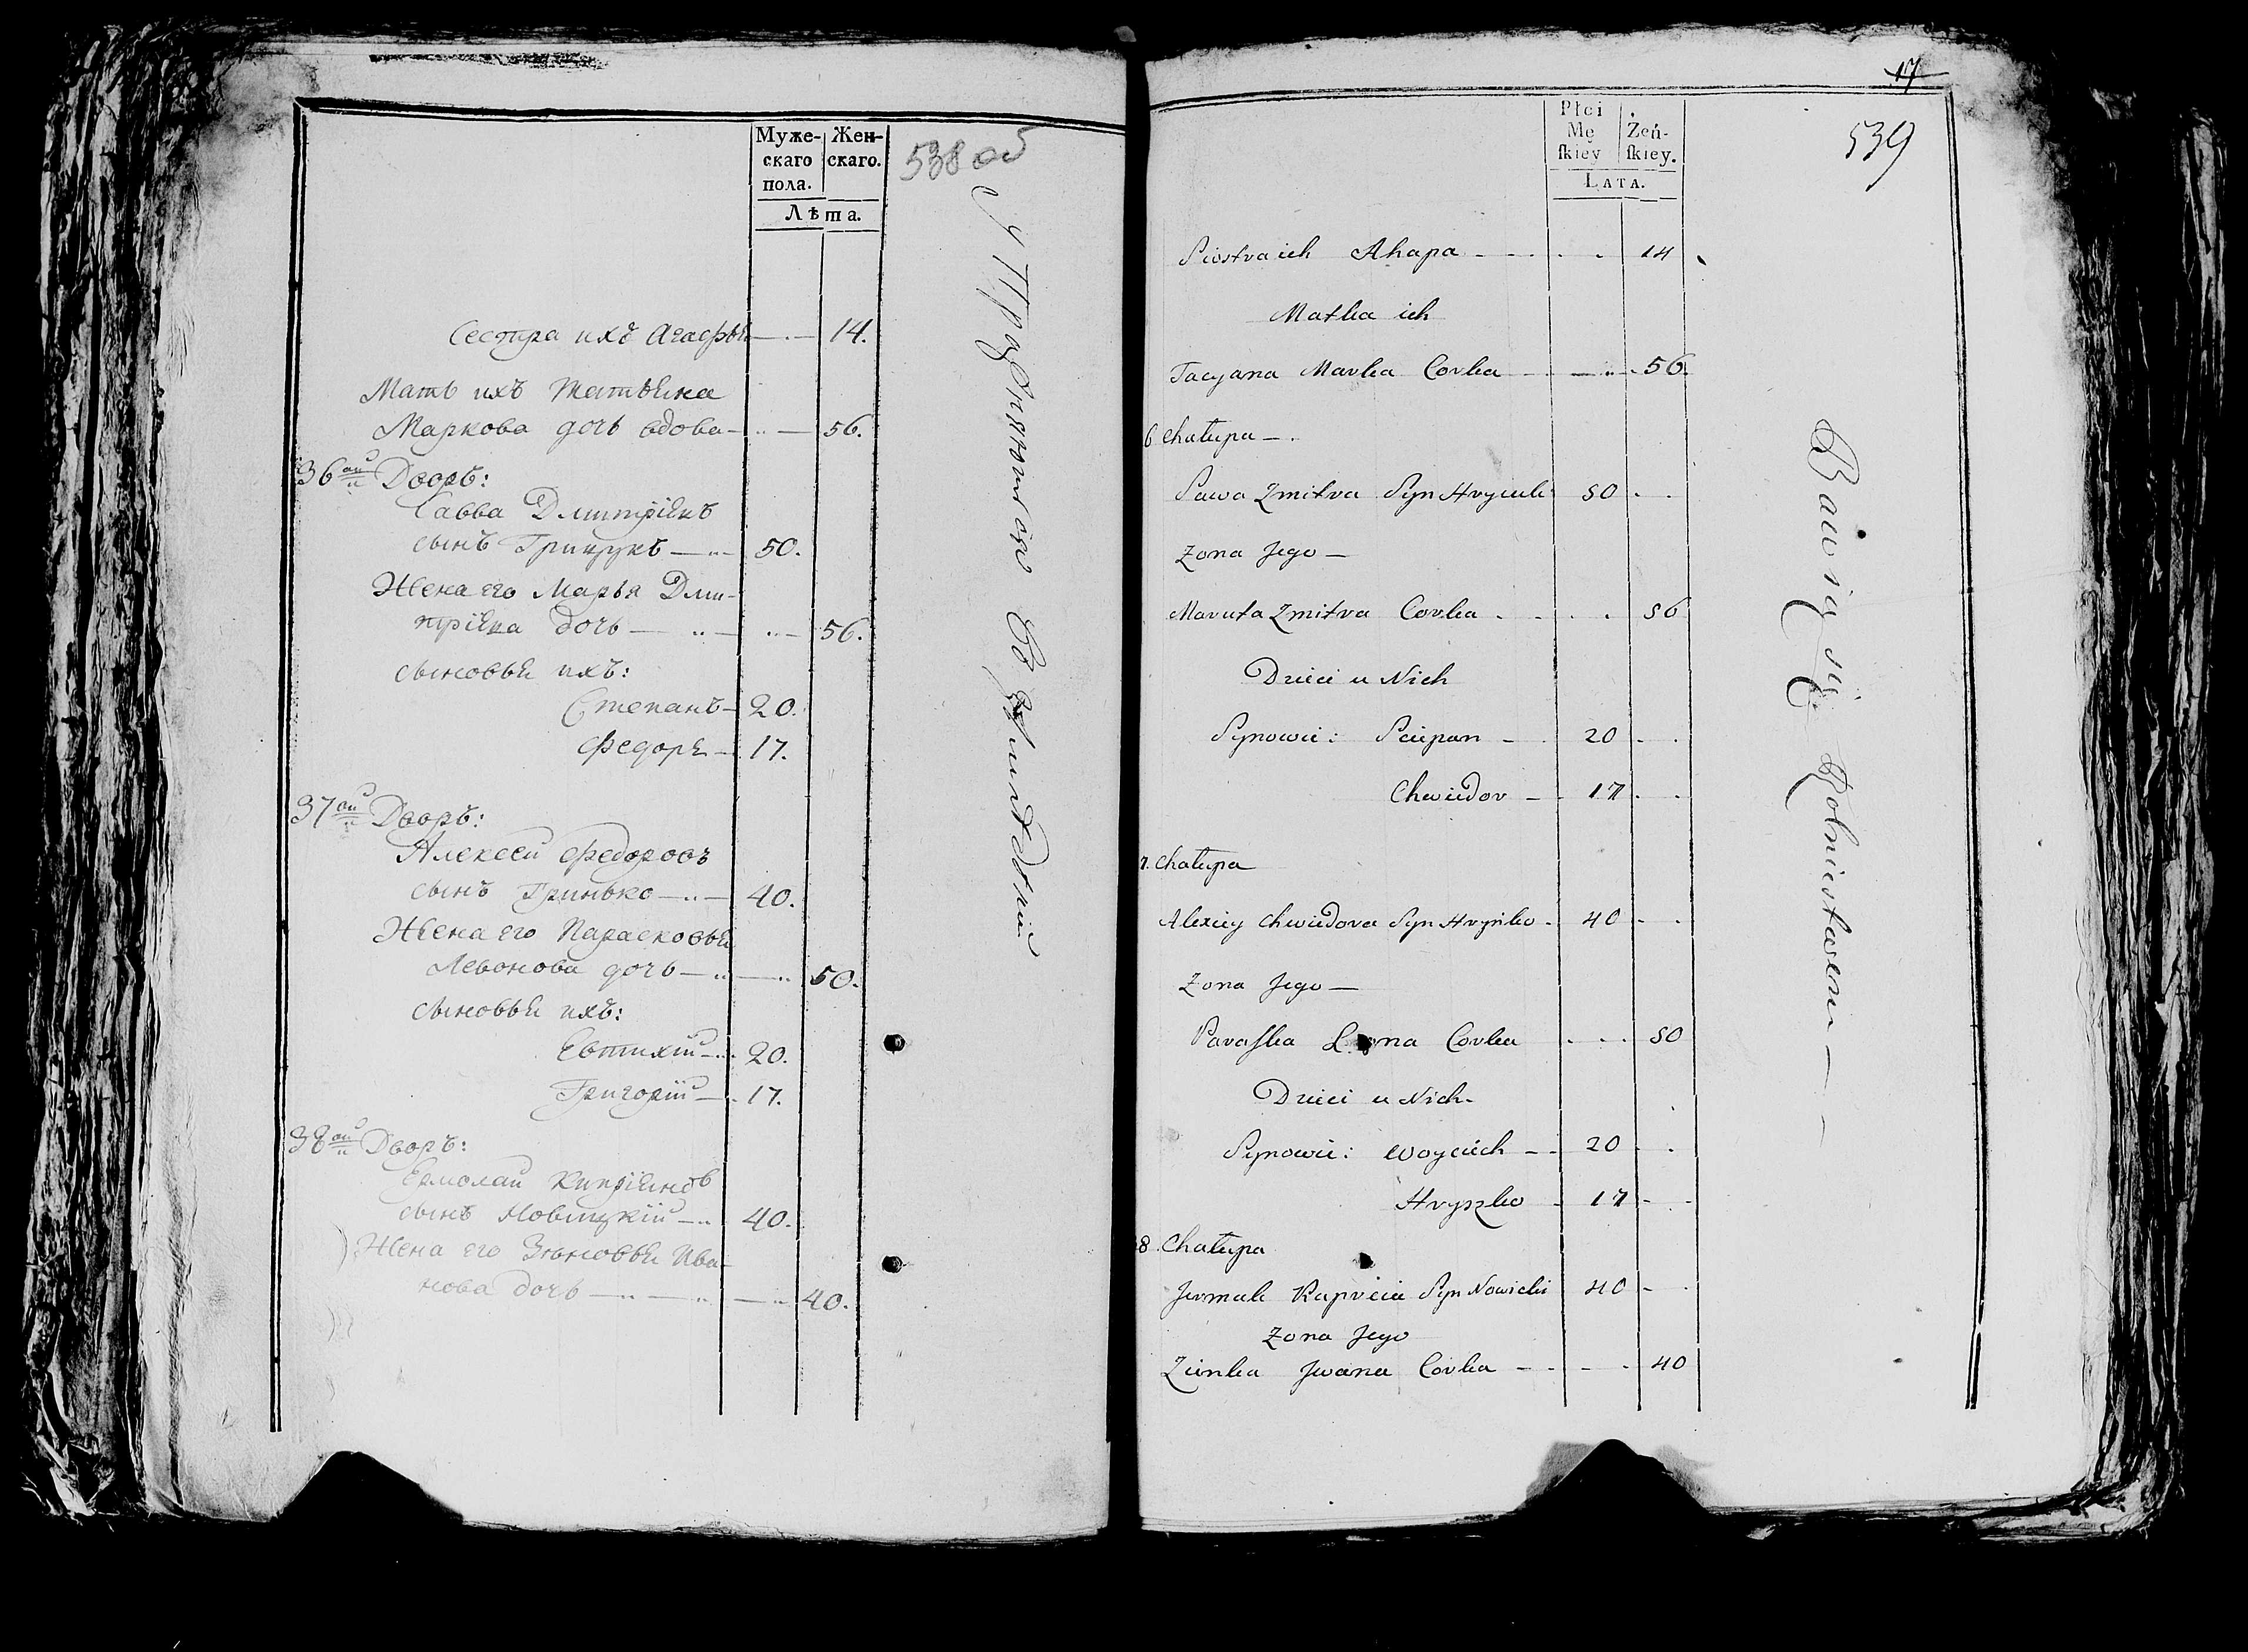 Муже- Жен-
скаго скаго.
пола.
Лѣта.
538 об
Сестра ихъ Агафья — 14.
Мать ихъ Татьяна
Маркова дочь вдова — 56.
36ой Дворъ:
Савва Дмитріевъ
сынъ Грицукъ — 50.
Жена его Марья Дми-
тріева дочь — 56.
сыновья ихъ:
Степанъ — 20.
Федоръ — 17.
37ой Дворъ:
Алексей Федоровъ
сынъ Гринько — 40.
Жена его Парасковья
Левонова дочь — 50.
сыновья ихъ:
Евтихій — 20.
Григорій — 17.
38ой Дворъ:
Ермолай Купріяновъ
сынъ Новицкій — 40.
Жена его Зѣновья Ива-
нова дочь — 40.
17
Płci
Mę Żeń-
ſkiey ſkiey.
LATA.
539
Siostra ich Ahapa — 14
Matka ich
Tacyana Marka Corka — 56.
6 Chałupa —
Sawa Zmitra Syn Hrycuk 50
Zona Jego —
Maruta Zmitra Corka 56
Dzieci u Nich
Synowie: Sciepan — 20
Chwiedor — 17
7. Chałupa
Alexiey Chwiedora Syn Hryńko 40
Zona Jego —
Paraſka L ona Corka 50
Dzieci u Nich
Synowie: Woyciech — 20
Hryszko 17
8. Chałupa
Jermak Kupreia Syn Nowicki 40
Zona Jego
Zienka Jwana Corka — 40
Bawią się Rolnictwem —